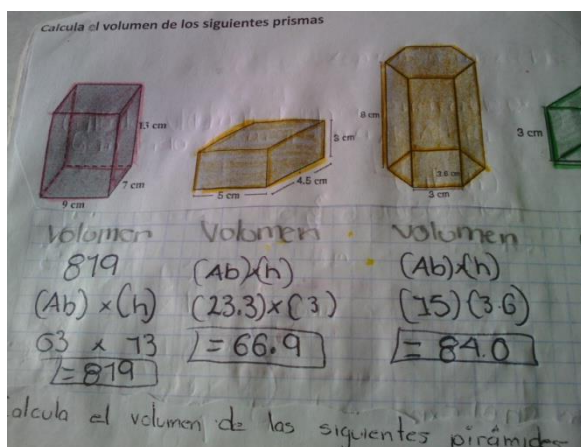 Calcula el volumen de los siguientes prismas
13 cm
7 cm
9 cm
3 cm
4.5 cm
5 cm
8 cm
3.6 cm
3 cm
3 cm
Volumen
819
(Ab) x (h)
63 x 13
= 819
Volumen
(Ab)x(h)
(23.3)x(3)
= 66.9
Volumen
(Ab)x(h)
(15)(3.6)
= 84.0
alcula el volumen de las siguientes pirámides